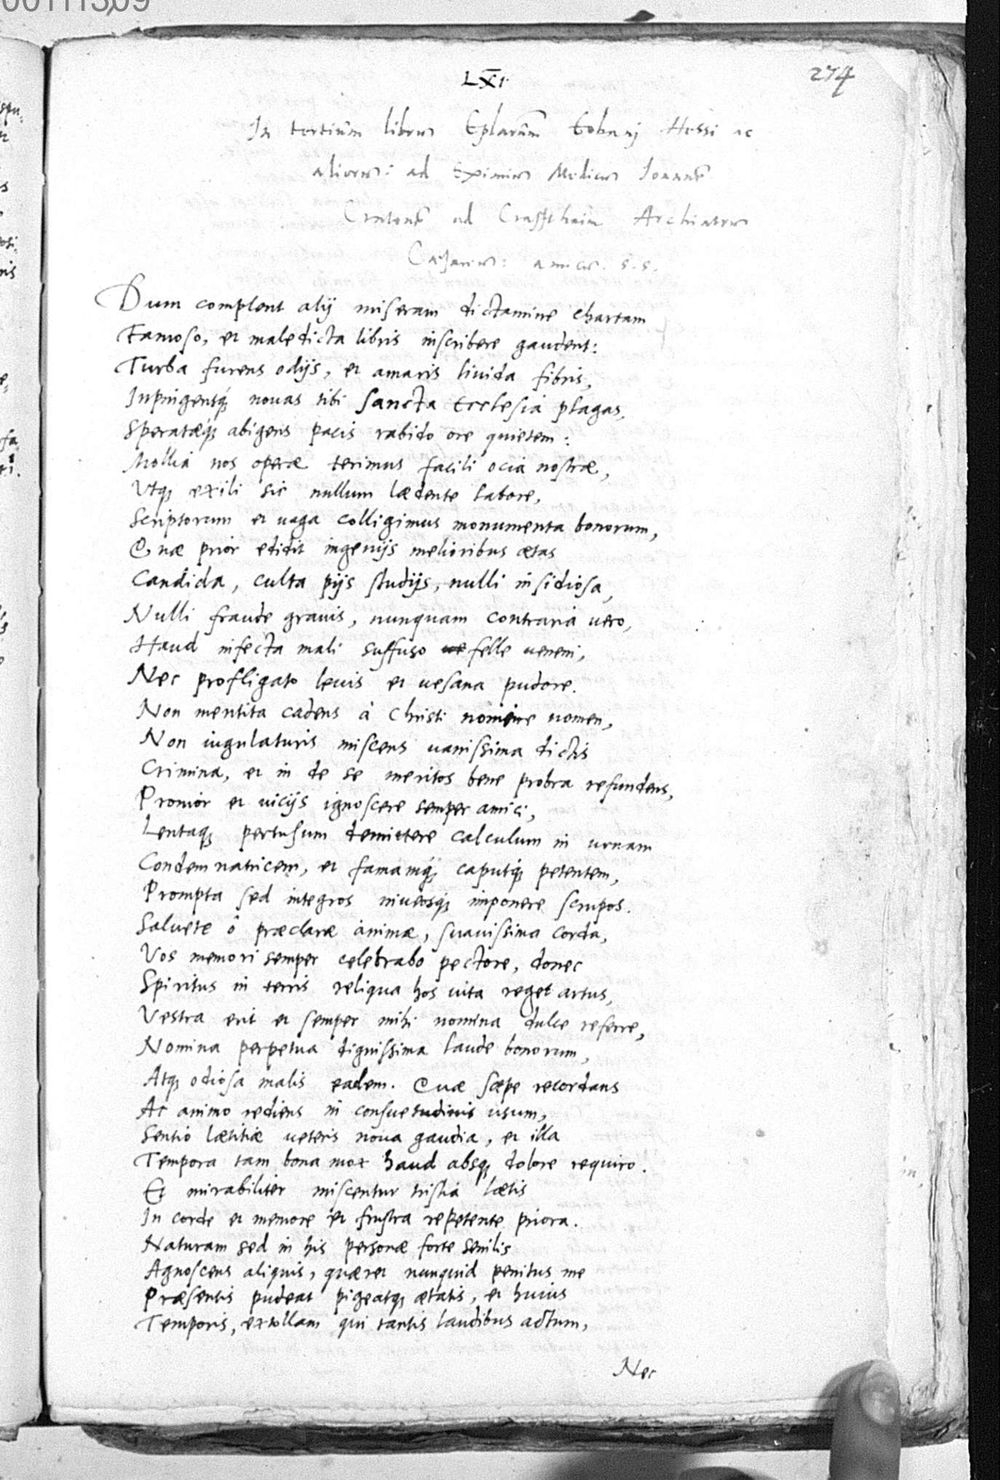 00111309
LXI
274
In tertium librum Eplarum Eobanj Hessi ac
aliorum: ad Eximium Medicum Joannem
Cratonem ad Craffthaim Archiatrum
Caesareum: amicum. S. S.
Dum complent alij miseram dictamine chartam
Famoso, et maledicta libris inscribere gaudent:
Turba furens odijs, et amaris liuida fibris,
Inpingensq́ nouas tibi sancta Ecclesia plagas,
Speratæq abigens pacis rabido ore quietem:
Mollia nos operæ terimus facili ocia nostræ,
Vtq exili sic nullum lædente labore,
Scriptorum et uaga colligimus monumenta bonorum,
Quæ prior edidit ingenijs melioribus ætas
Candida, culta pijs studijs, nulli insidiosa,
Nulli fraude grauis, nunquam contraria uero,
Haud infecta mali suffuso felle ueneni,
Nec profligato leuis et uesana pudore.
Non mentita cadens à Christi nomine nomen,
Non iugulaturis miscens uanissima dictis
Crimina, et in de se meritos bene probra refundens,
Pronior et vicijs ignoscere semper amici,
Lentaq pertusum demittere calculum in urnam
Condemnatricem, et famamq́ caputq́ petentem,
Prompta sed integros niueosq imponere scrupos.
Saluete ô præclaræ animæ, suauissima corda,
Vos memori semper celebrabo pectore, donec
Spiritus in terris reliqua hos uita reget artus,
Vestra erit et semper mihi nomina dulce referre,
Nomina perpetua dignissima laude bonorum,
Atq odiosa malis eadem. Quæ sæpe recordans
Ac animo rediens in consuetudinis usum,
Sentio lætitiæ ueteris noua gaudia, et illa
Tempora tam bona mox haud absq dolore requiro.
Et mirabiliter miscentur tristia lætis
In corde et memore et frustra repetente priora.
Naturam sed in his personæ forte senilis
Agnoscens aliquis, quæret nunquid penitus me
Præsentis pudeat pigeatq ætatis, et huius
Temporis, extollam qui tantis laudibus actum,
Nec